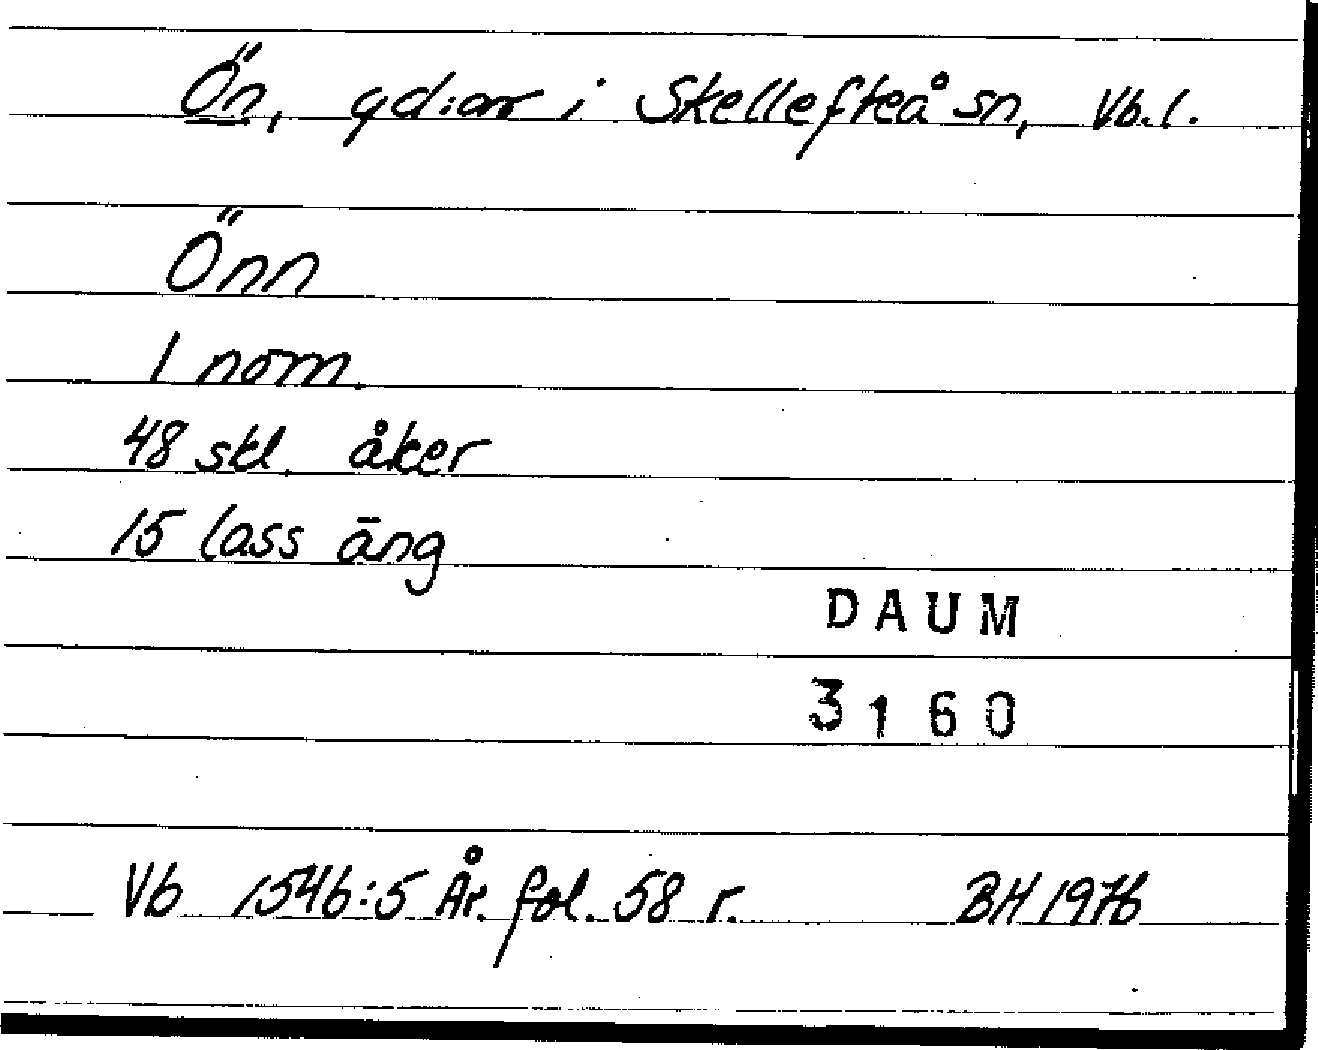 Ön, gd:ar i Skellefteå sn, Vb.l.
Önn
1 nom.
48 skl. åker
15 lass äng
DAUM
3160
Vb 1546:5 År. fol. 58 r. BH 1976